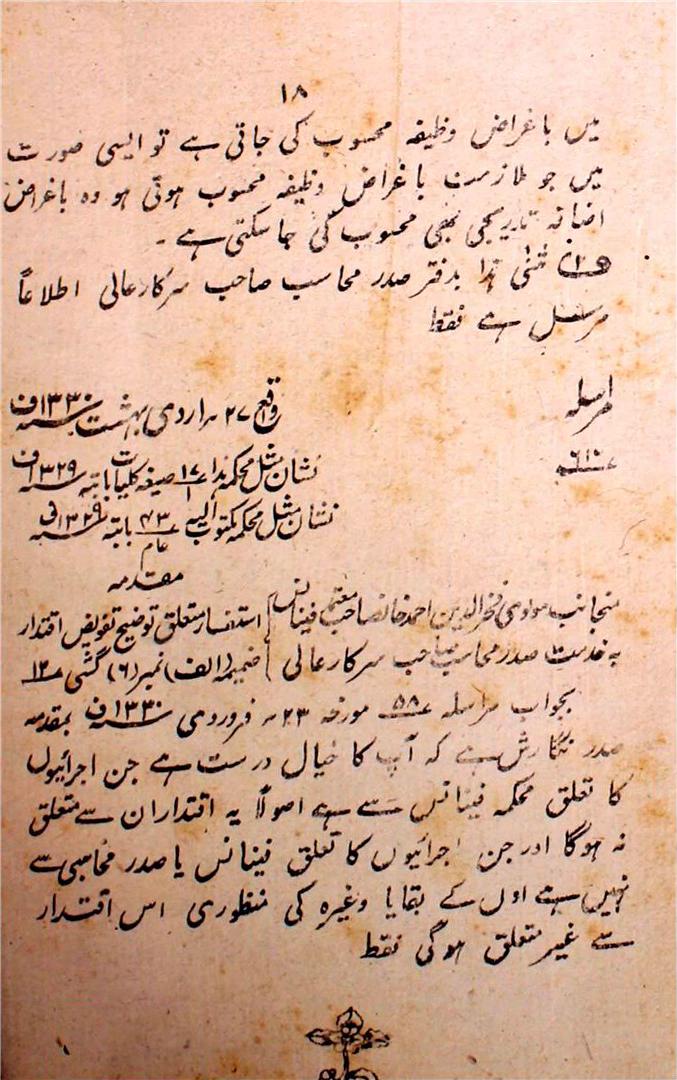 ۱۸
میں باغراض وظیفہ محسوب کی جاتی ہے تو ایسی صورت
میں جو ملازمت باغراض وظیفہ محسوب ہوئی ہو وہ باغراض
اضافہ تدریجی بھی محسوب کی جا سکتی ہے ۔
(۲) مثنیٰ ہذا بدفتر صدر محاسب صاحب سرکارعالی اطلاعاً
مرسل ہے فقط
مراسلہ
۶۱۰
واقع ۲۷ ہر اردی بہشت سنہ ۱۳۳۰ف
نشان مثل محکمہ ہذا ۱۷/۱ صیغہ کلیات بابتہ سنہ ۱۳۲۹ف
نشان مثل محکمہ مکتوب الیہ ۴۳/عام بابتہ سنہ ۱۳۲۹ف
مقدمہ
منجانب مولوی فخرالدین احمد خانصاحب معتمد فینانس
بخدمت صدر محاسب صاحب سرکارعالی
استفسار متعلق توضیح تفویض اقتدار
ضمیمہ (الف) نمبر (۶) گشتی
بجواب مراسلہ ۵۸ مورخہ ۲۳ ہر فروردی سنہ ۱۳۳۰ف بمقدمہ
صدر نگارش ہے کہ آپ کا خیال درست ہے جن اجرائیوں
کا تعلق محکمہ فینانس سے ہے اصولاً یہ اقتداران سے متعلق
نہ ہوگا اور جن اجرائیوں کا تعلق فینانس یا صدر محاسبی سے
نہیں ہے اون کے بقایا وغیرہ کی منظوری اس اقتدار
سے غیر متعلق ہوگی فقط